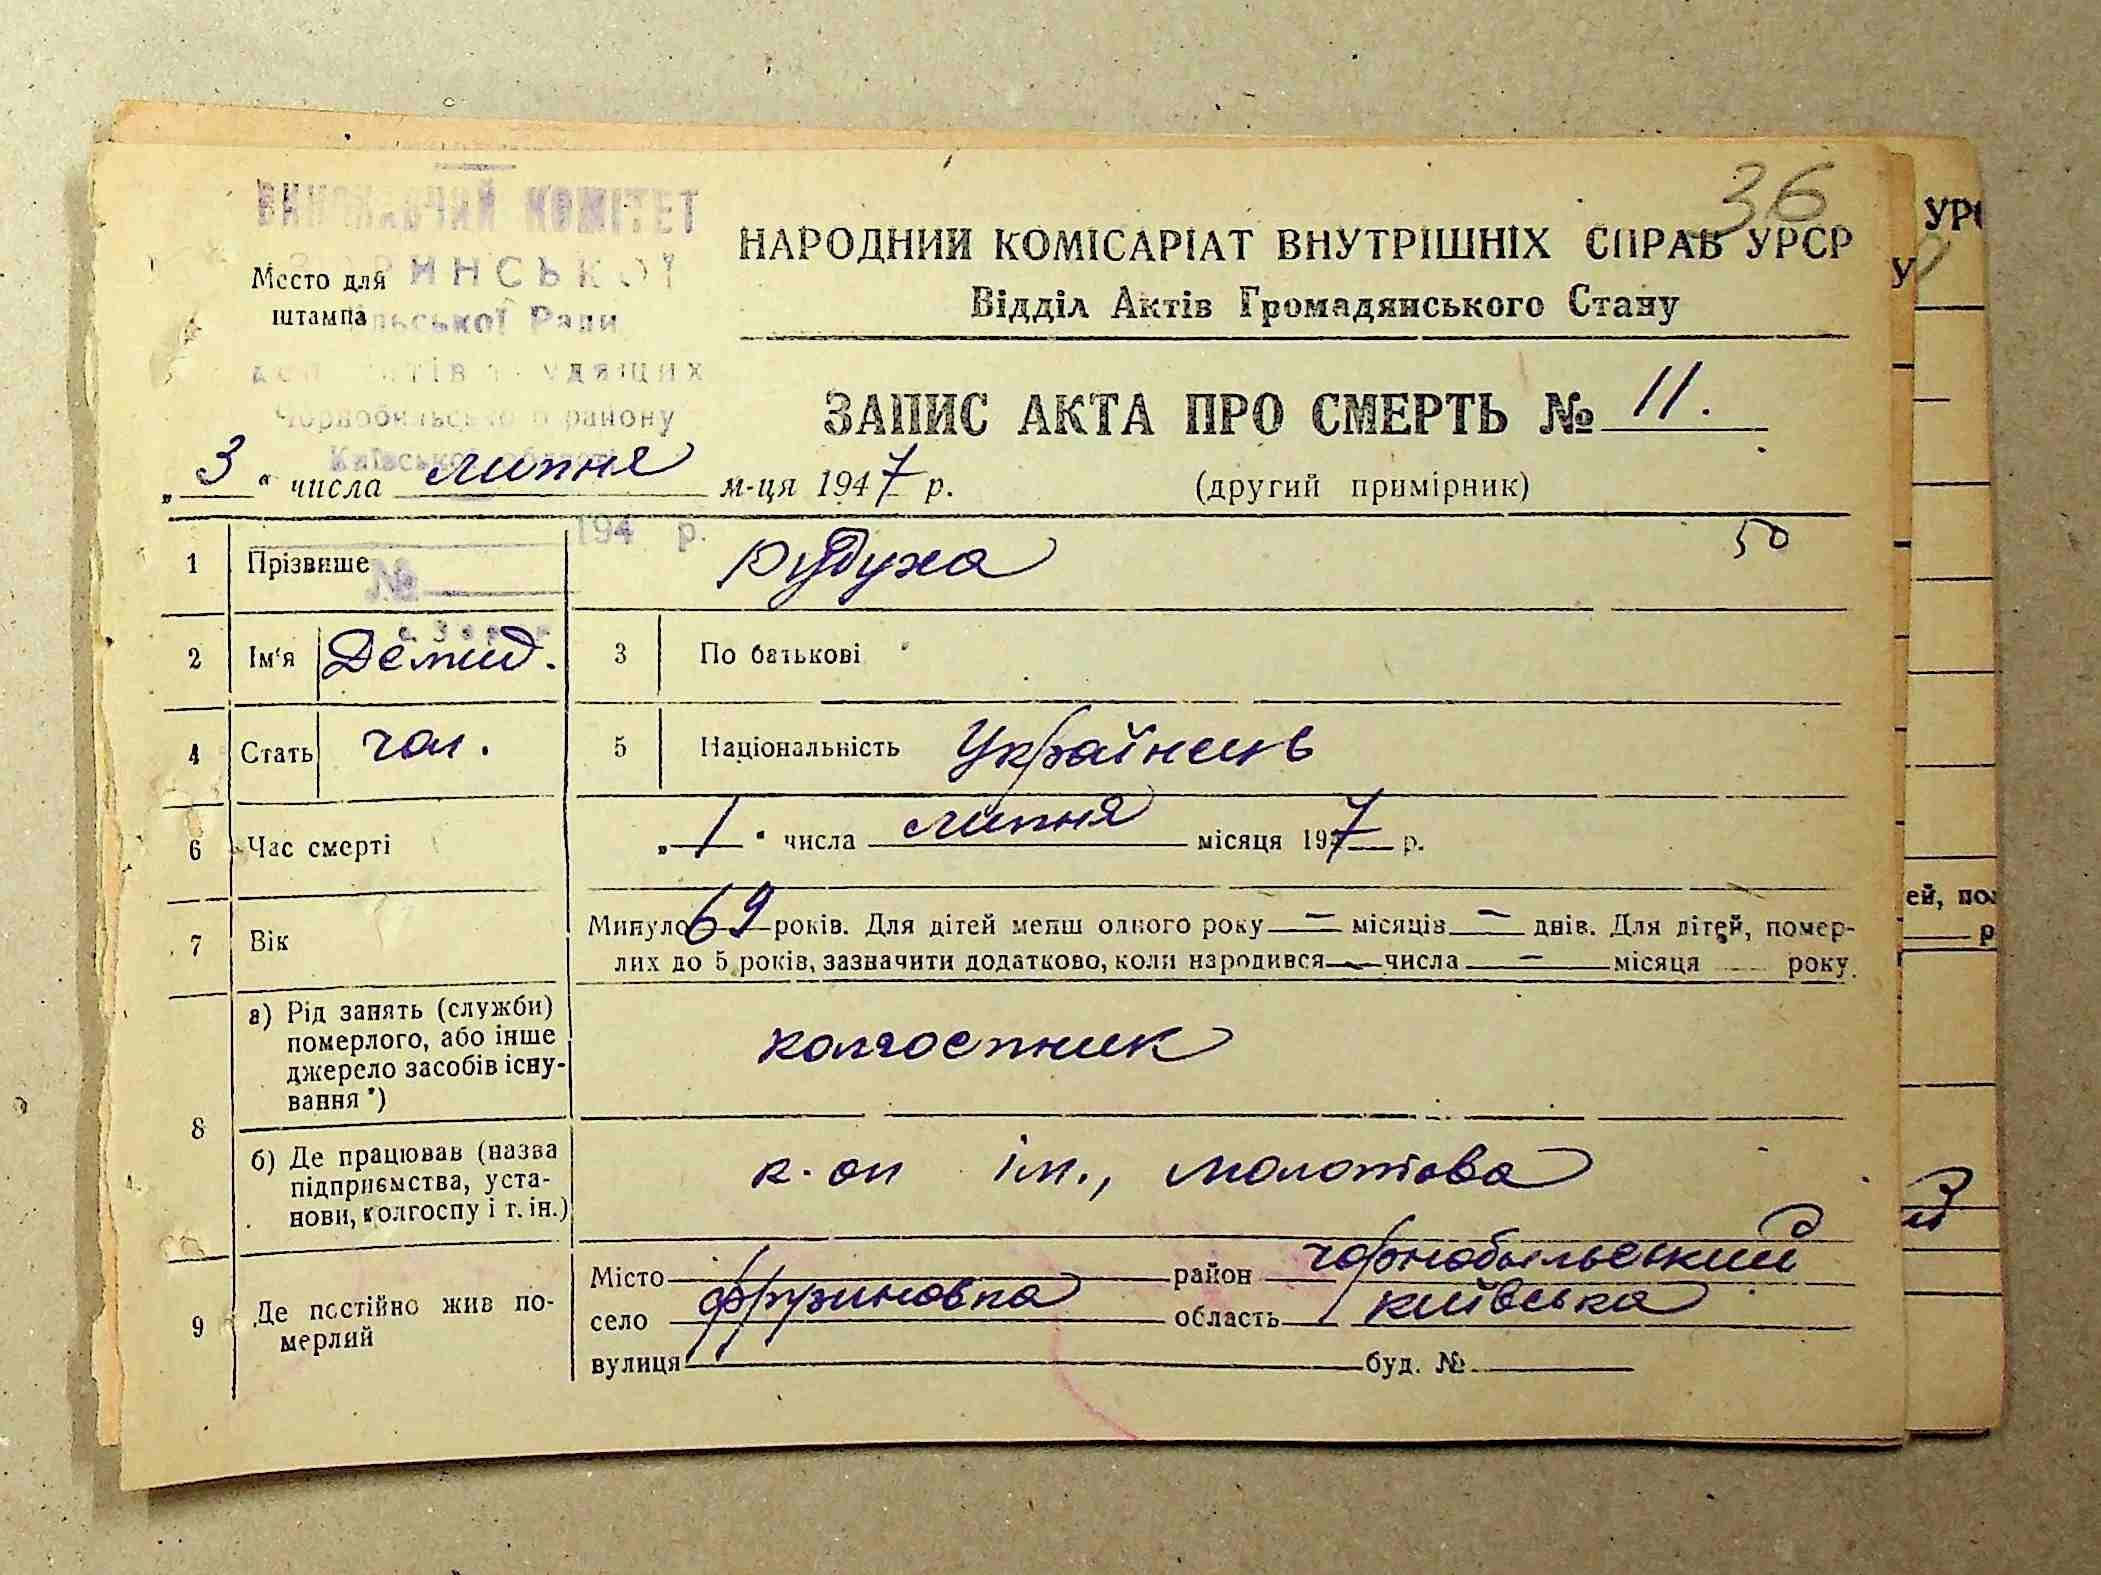 36
ВИКОНАВЧИЙ КОМІТЕТ
Место для
штампа
Ради
Чорнобильського району
Київської області
194 р.
№
НАРОДНИЙ КОМІСАРІАТ ВНУТРІШНІХ СПРАВ УРСР
Відділ Актів Громадянського Стану
ЗАПИС АКТА ПРО СМЕРТЬ № 11.
„ 3 “ числа липня м-ця 1947 р. (другий примірник)
1 Прізвище Рудуха 50
2 Ім'я Демид. 3 По батькові
4 Стать чол. 5 Національність Українець
6 Час смерті „ 1 “ числа липня місяця 1947 р.
7 Вік Минуло 69 років. Для дітей менш одного року — місяців — днів. Для дітей, помер-
лих до 5 років, зазначити додатково, коли народився — числа — місяця року.
8 а) Рід занять (служби)
померлого, або інше
джерело засобів існу-
вання *)
колгоспник
б) Де працював (назва
підприємства, уста-
нови, колгоспу і т. ін.)
к-оп ім., молотова
9 Де постійно жив по-
мерлий
Місто район чорнобыльський
село область київська
вулиця буд. №
УРС
У
ей, пом
р